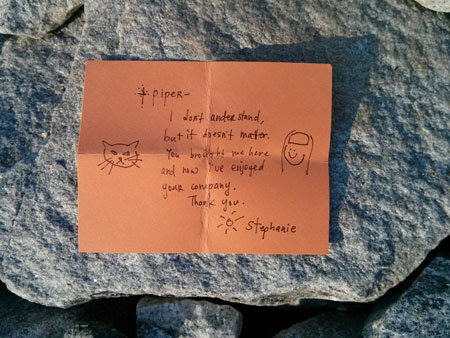 piper-
I don't understand,
but it doesn't matter.
You brought me here
and now I've enjoyed
your company.
Thank you.
Stephanie